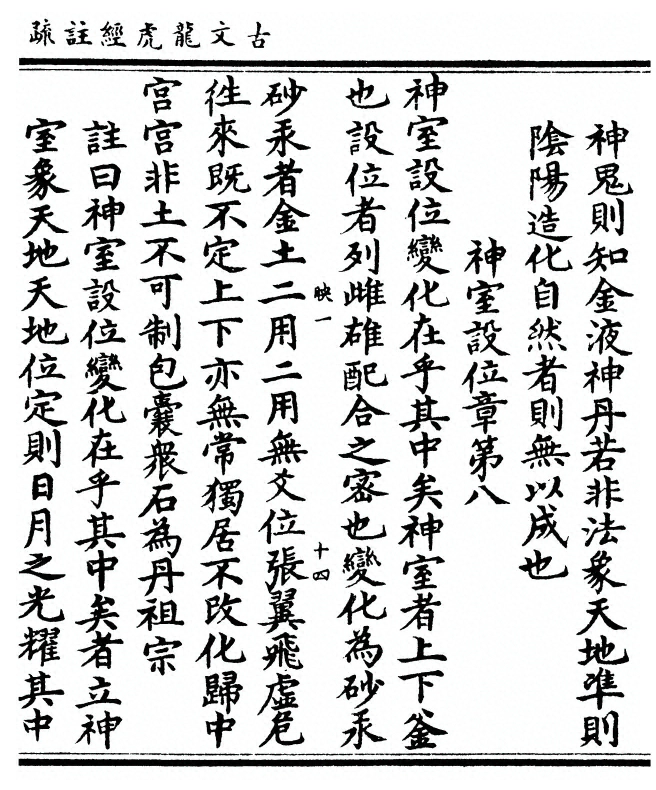 古文龍虎經註疏
神鬼則知金液神丹若非法象天地準則
陰陽造化自然者則無以成也
神室設位章第八
神室設位變化在乎其中矣神室者上下釜
也設位者列雌雄配合之密也變化為砂汞
映一
十四
砂汞者金土二用二用無爻位張翼飛虛危
徃來既不定上下亦無常獨居不改化歸中
宮宮非土不可制包囊衆石為丹祖宗
註曰神室設位變化在乎其中矣者立神
室象天地天地位定則日月之光耀其中